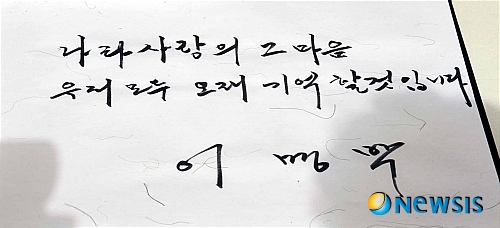 나라사랑의 그 마음
우리 모두 오래 기억 할것입니다
이 명 박
Newsis